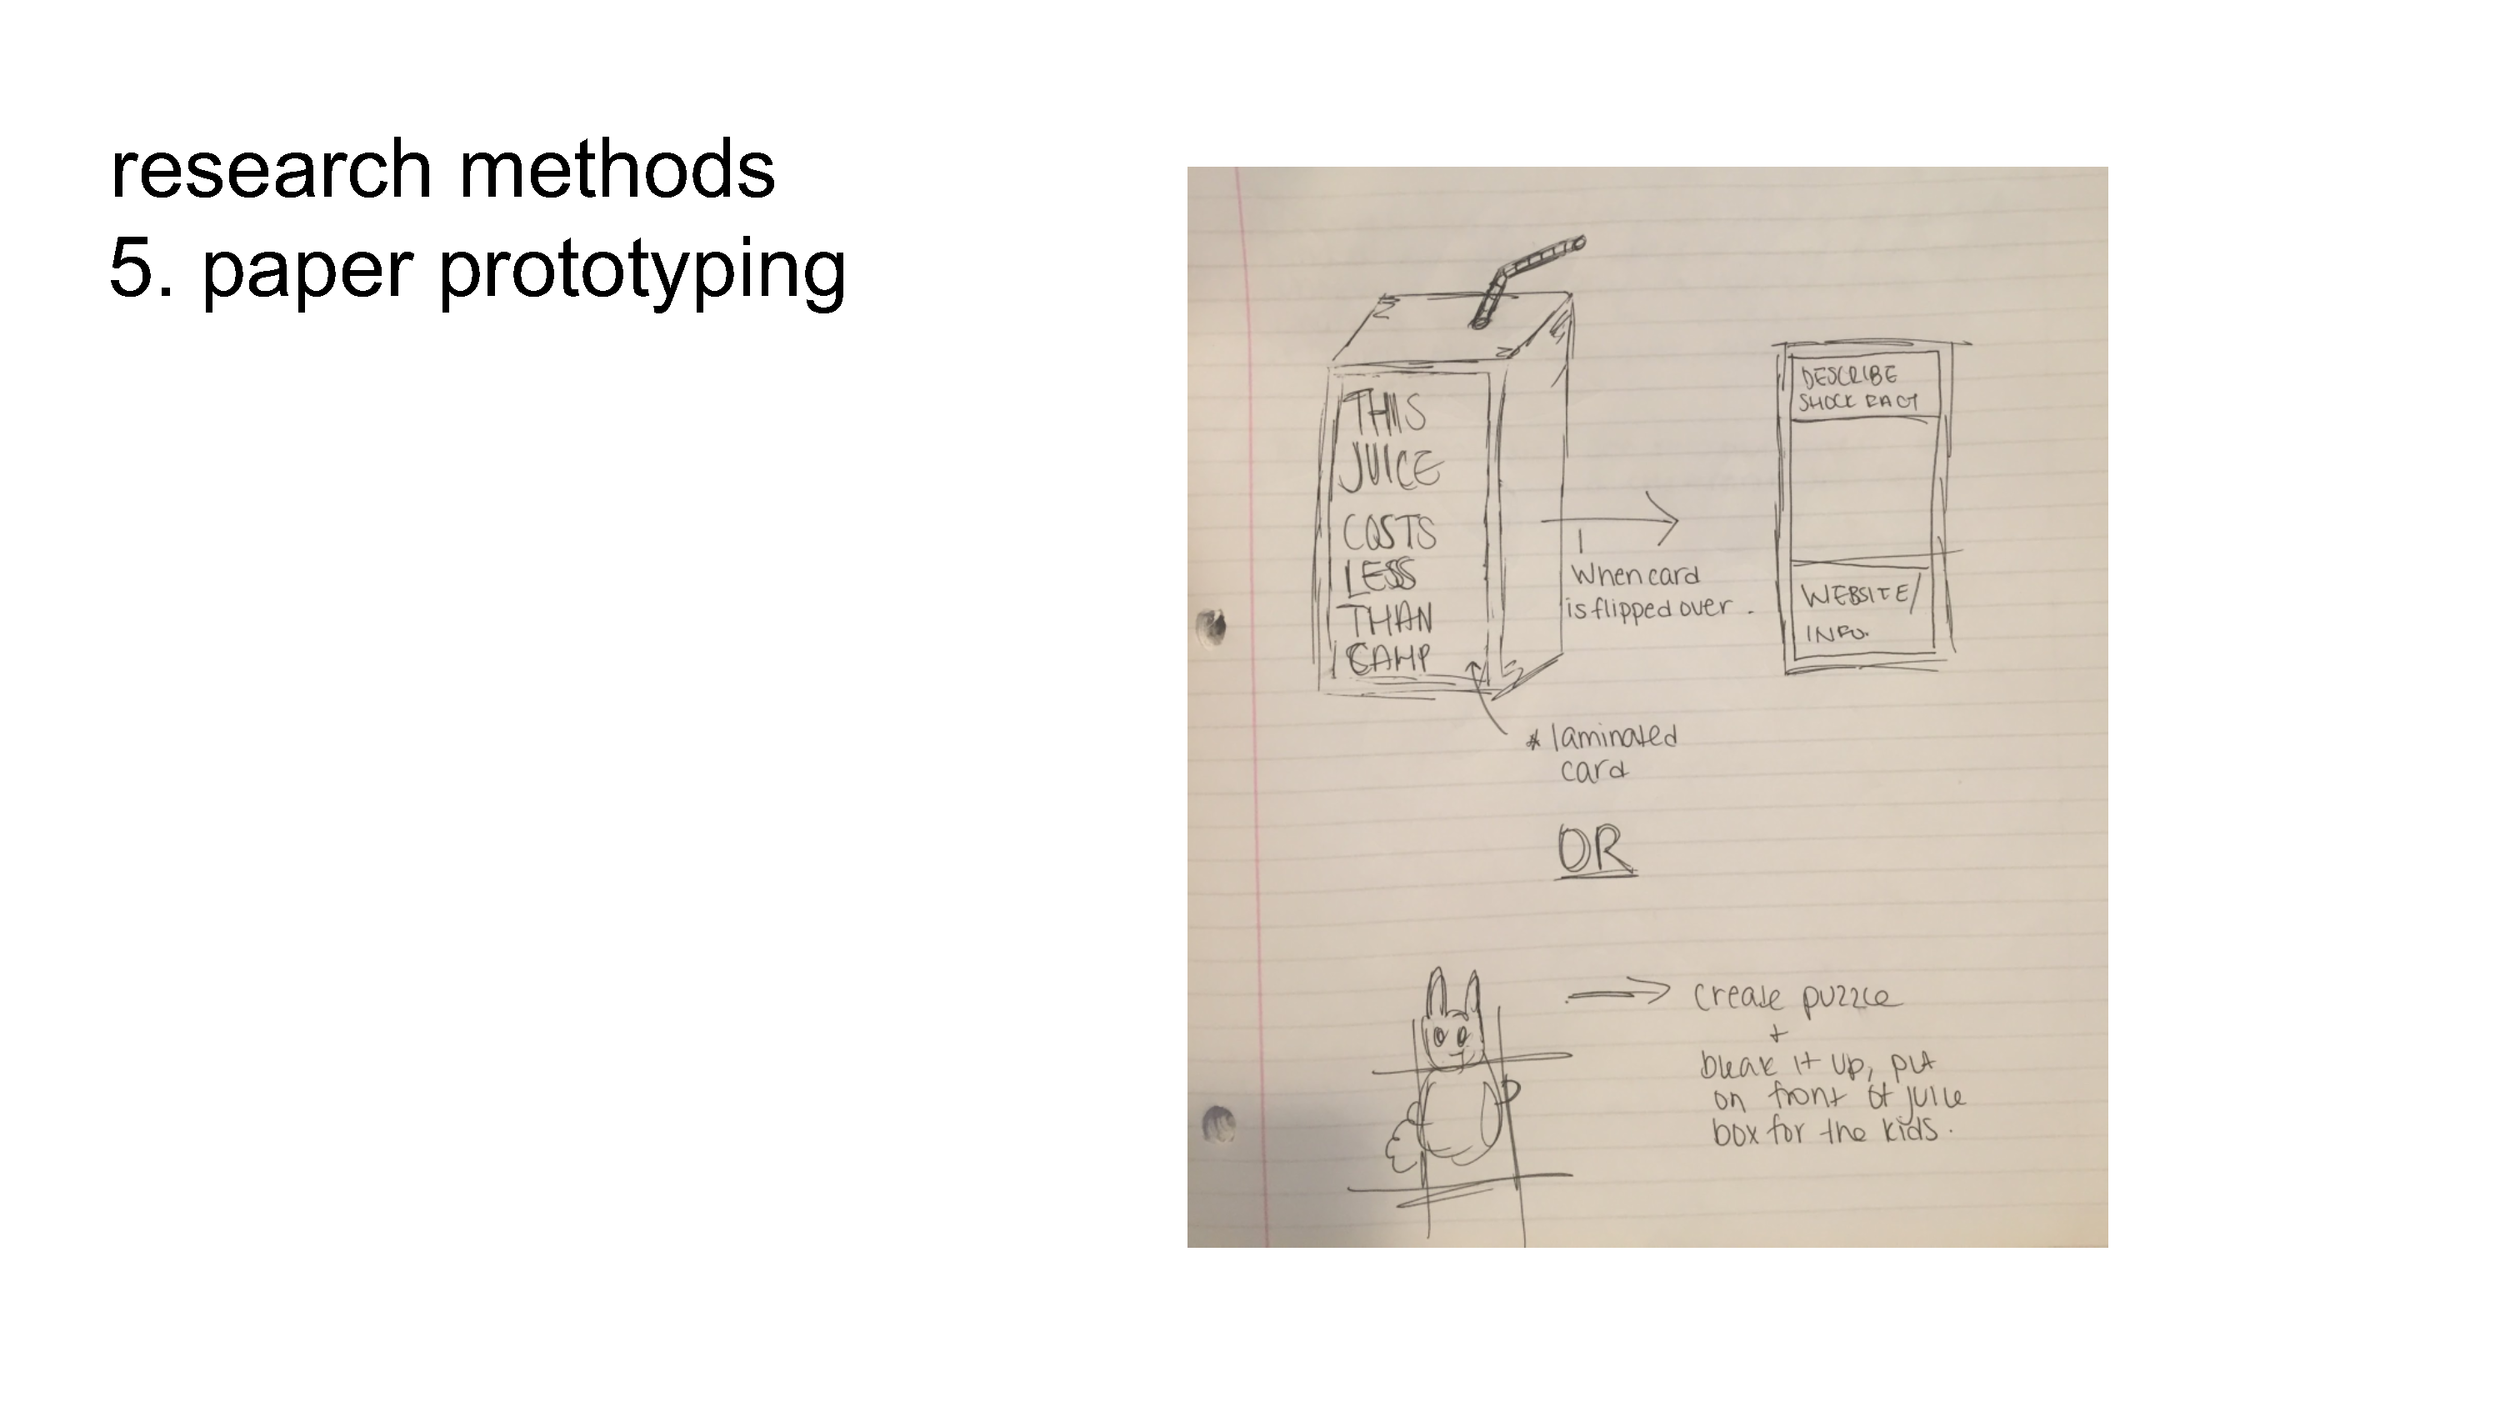 research methods
5. paper prototyping
THIS
JUICE
COSTS
LESS
THAN
CAMP
When card
is flipped over.
DESCRIBE
SHOCK FACT
WEBSITE/
INFO.
* laminated
card
OR
create puzzle
+
break it up, put
on front of juice
box for the kids.